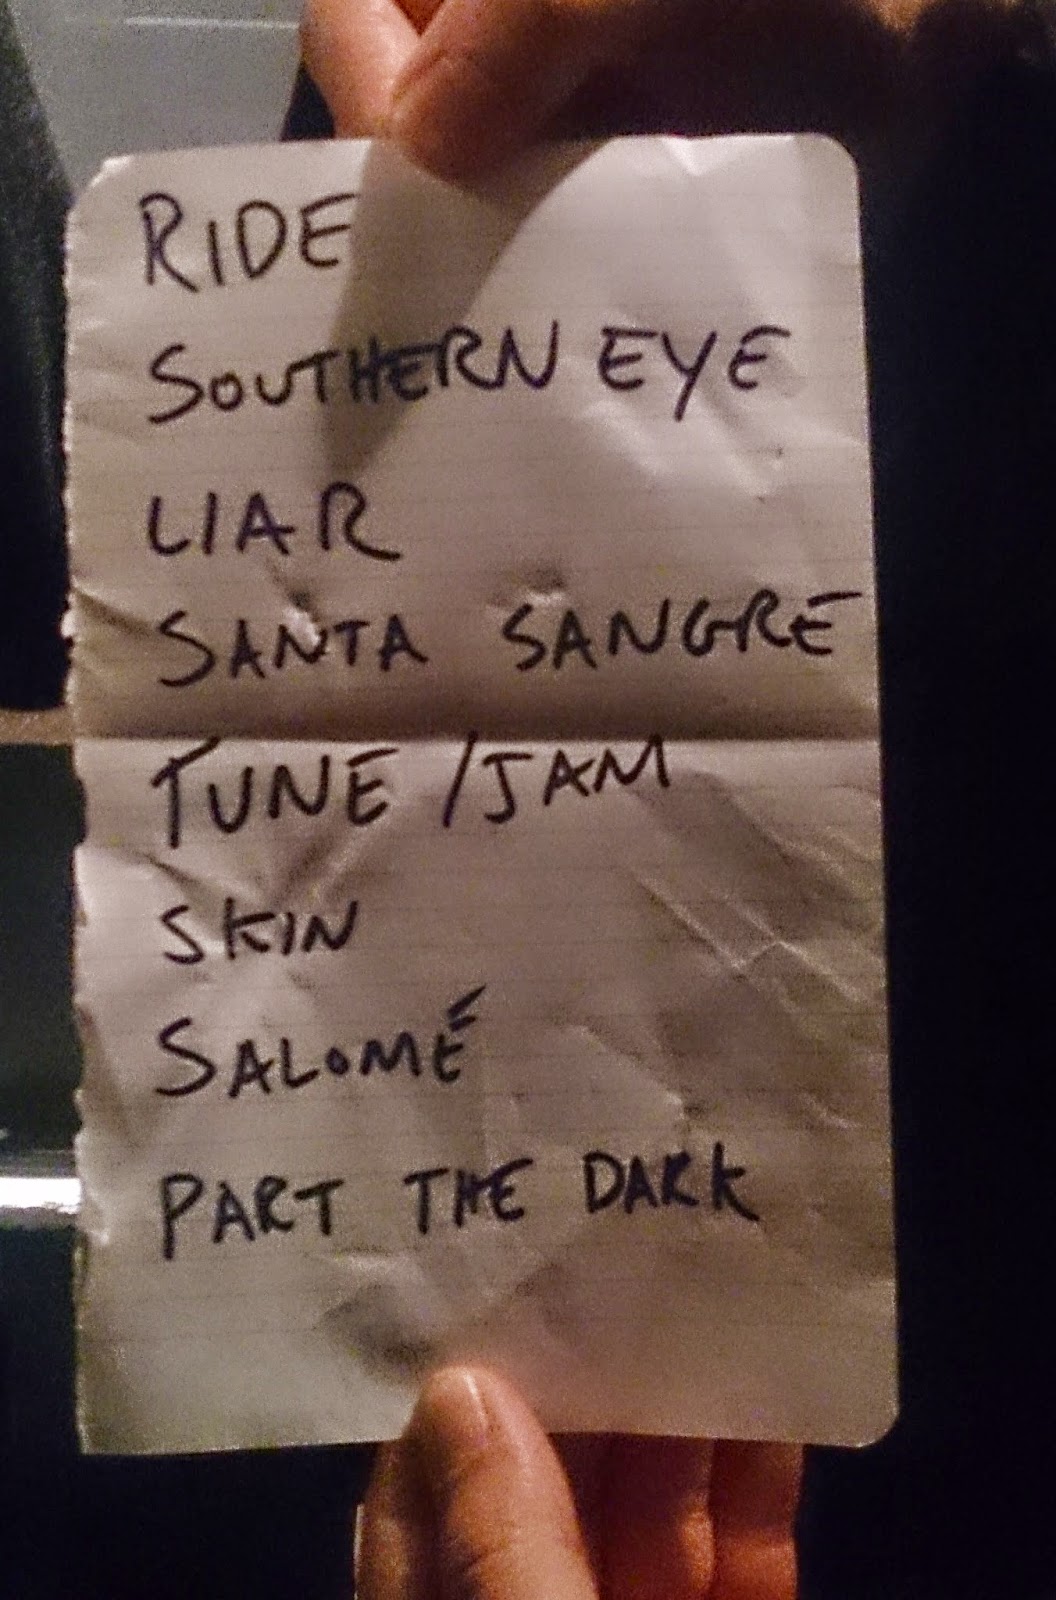 RIDE
SOUTHERN EYE
LIAR
SANTA SANGRE
TUNE / JAM
SKIN
SALOMÉ
PART THE DARK